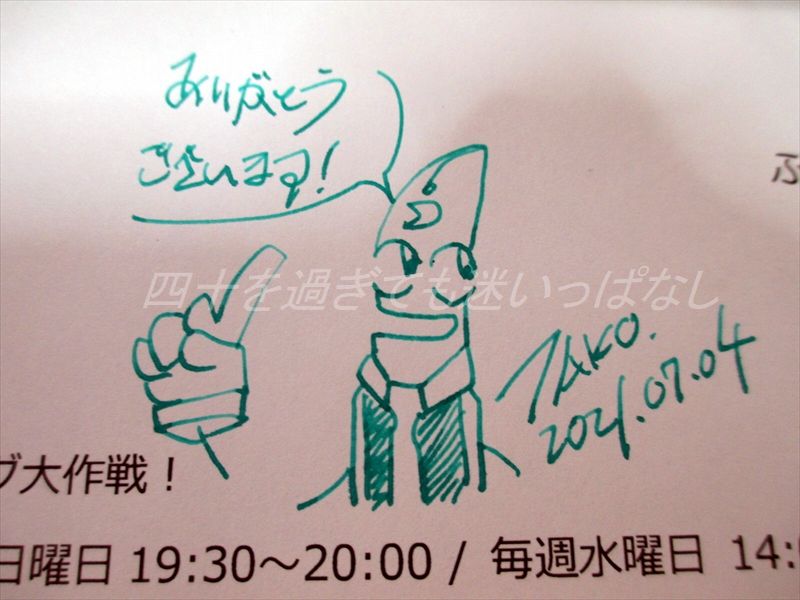 ありがとう
ございます!
ふ
四十を過ぎても迷いっぱなし
TAKO.
2021.07.04
ブ大作戦!
日曜日 19:30~20:00 / 毎週水曜日 14: